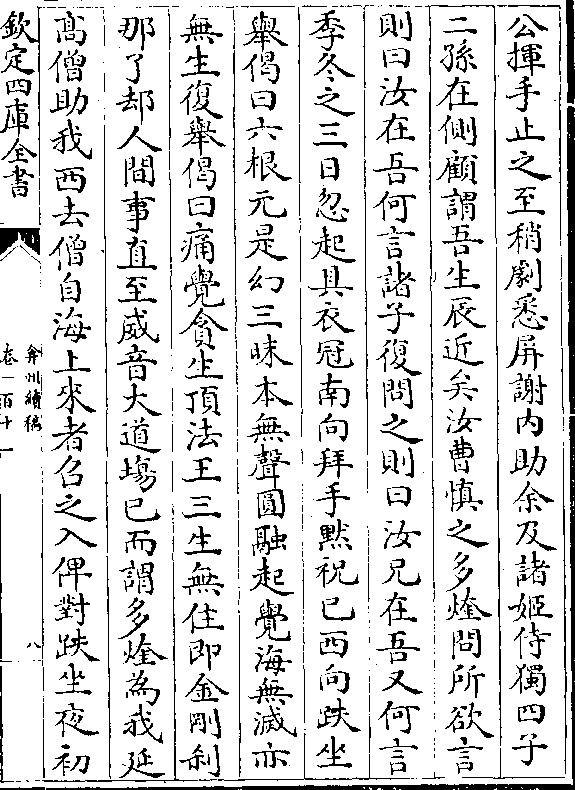 公揮手止之至稍劇悉屏謝内助余及諸姬侍獨四子
二孫在側顧謂吾生辰近矣汝曹慎之多煃問所欲言
則曰汝在吾何言諸子復問之則曰汝兄在吾又何言
季冬之三日忽起具衣冠南向拜手黙祝已西向趺坐
舉偈曰六根元是幻三昧本無聲圓融起覺海無滅亦
無生復舉偈曰痛覺貪生頂法王三生無住即金剛刹
那了却人間事直至威音大道塲已而謂多煃為我延
髙僧助我西去僧自海上來者召之入俾對趺坐夜初
欽定四庫全書
弇州續稿
卷一百十
八